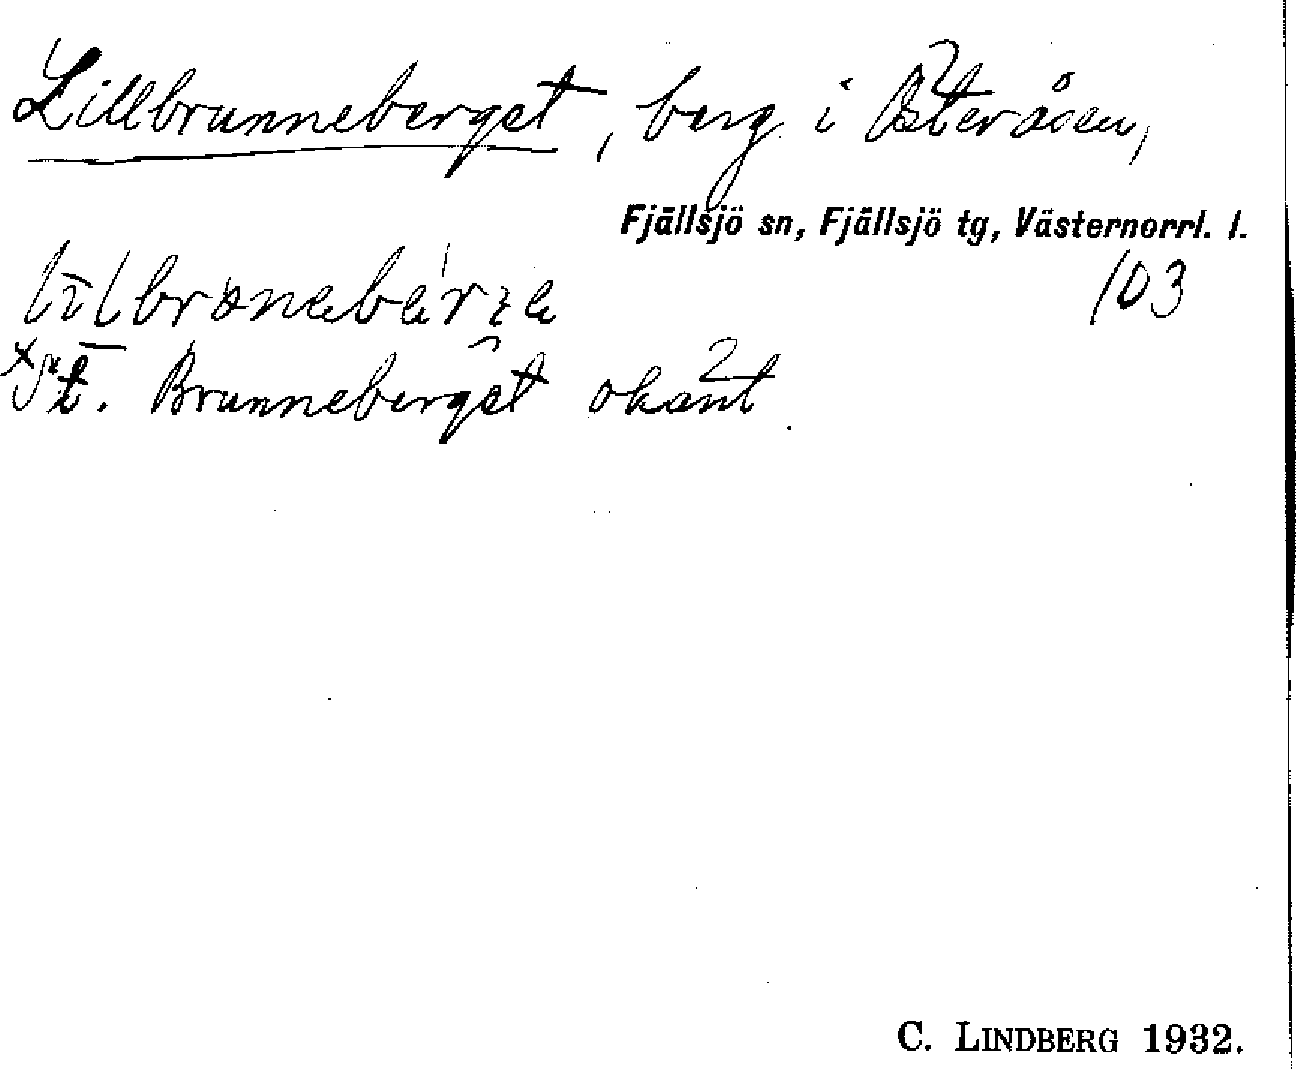 Lillbrunneberget, berg i Österåsen,
Fjällsjö sn, Fjällsjö tg, Västernorrl. l.
103
St. Brunneberget okänt.
C. LINDBERG 1932.